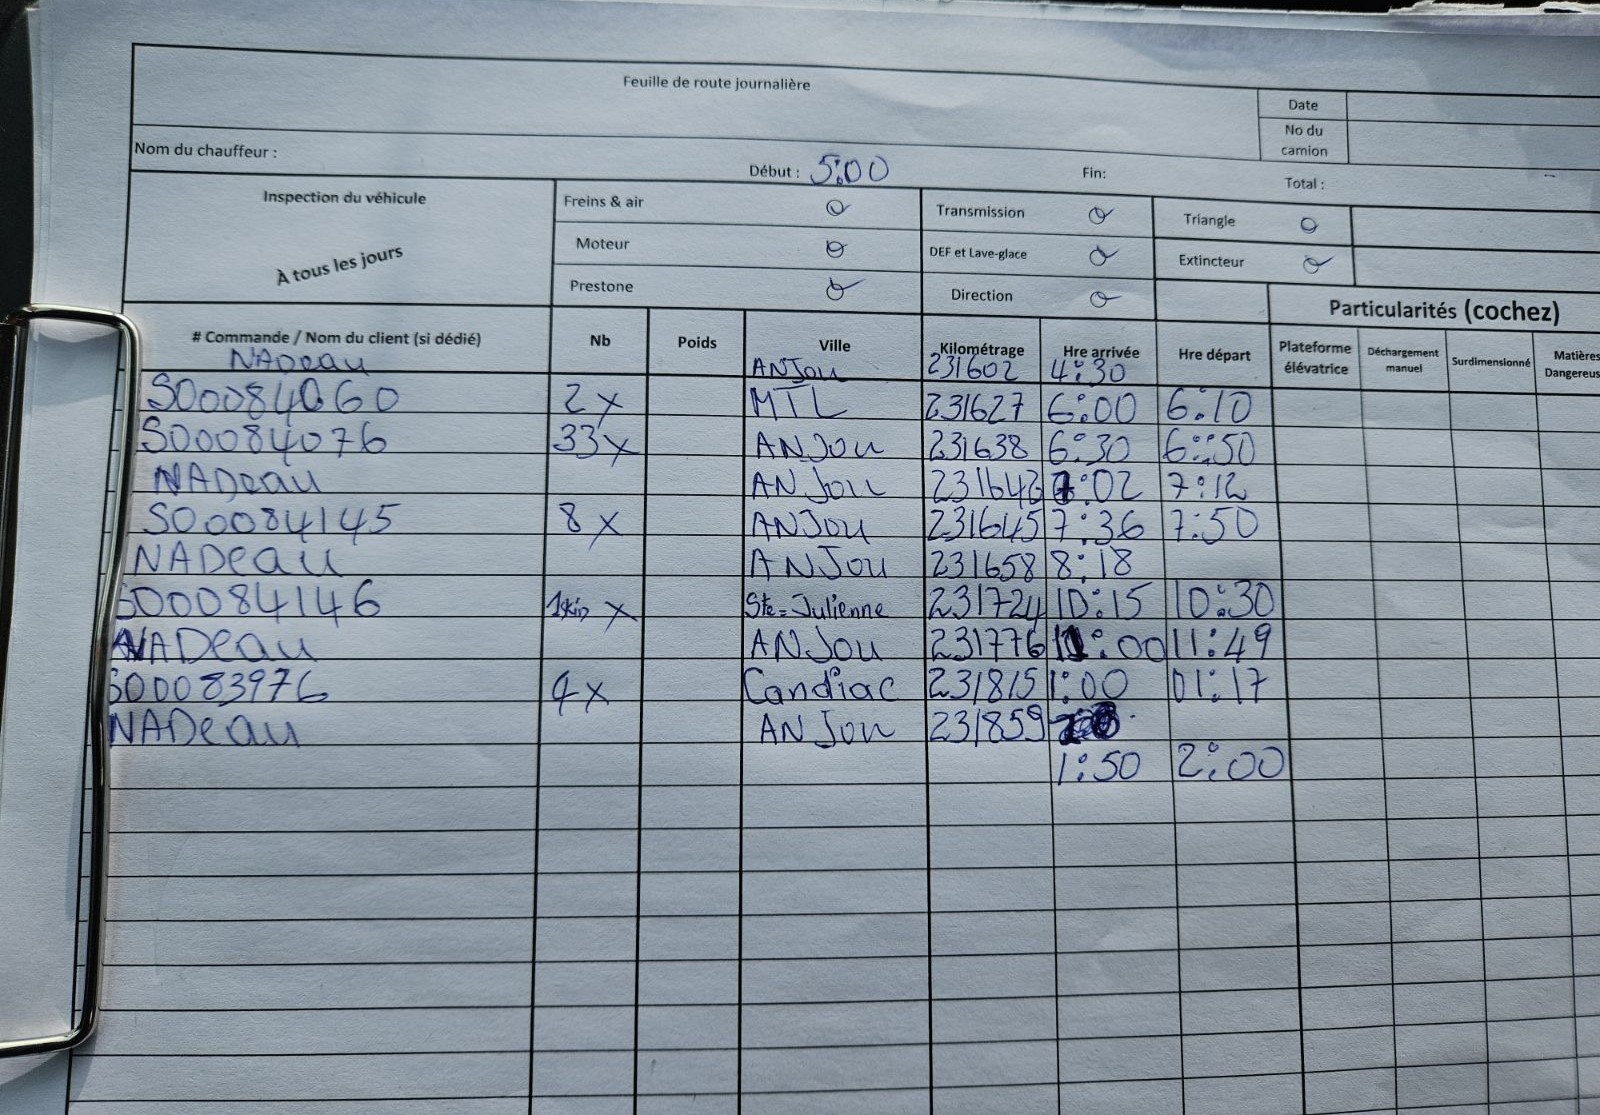 Feuille de route journalière
Date
No du camion
Nom du chauffeur :
Début : 5:00
Fin:
Total :
Inspection du véhicule
À tous les jours
Freins & air
Transmission
Triangle
Moteur
DEF et Lave-glace
Extincteur
Prestone
Direction
Particularités (cochez)
# Commande / Nom du client (si dédié) Nb Poids Ville Kilométrage Hre arrivée Hre départ Plateforme élévatrice Déchargement manuel Surdimensionné Matières
NADeau ANJou 231602 4:30
S00084060 2x MTL 231627 6:00 6:10
S00084076 33x ANJou 231638 6:30 6:50
NADeau ANJou 7:02 7:12
S00084145 8x ANJou 231645 7:36 7:50
NADeau ANJou 231658 8:18
S00084146 x Ste-Julienne 231724 10:15 10:30
NADeau ANJou 231776 11:00 11:49
S00083976 4x Candiac 231815 1:00 01:17
NADeau ANJou 231859
1:50 2:00